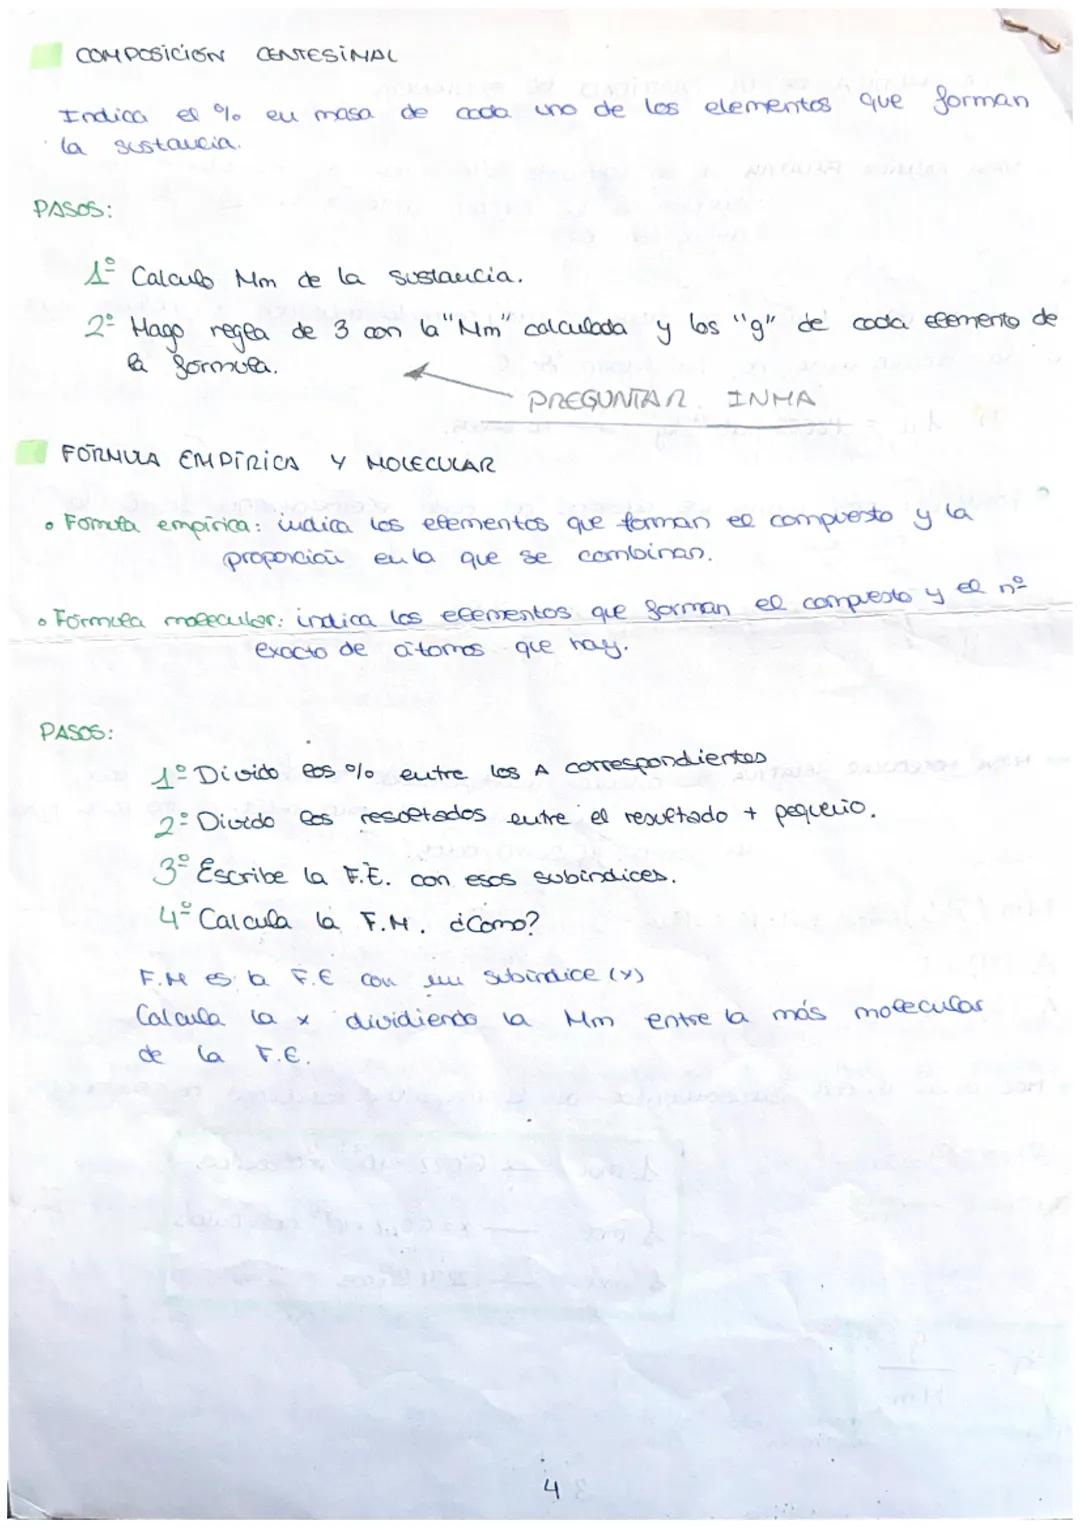 COMPOSICIÓN CENTESIMAL
Indica el % en masa de cada uno de los elementos que forman
la sustancia.
PASOS:
1º Calculo Mm de la sustancia.
2º Hago regla de 3 con la "Mm" calculada y los "g" de cada elemento de
la formula.
PREGUNTAR INMA
FÓRMULA EMPÍRICA Y MOLECULAR
• Fomula empírica: indica los elementos que forman el compuesto y la
proporción en la que se combinan.
• Fórmula molecular: indica los elementos que forman el compuesto y el nº
exacto de átomos que hay.
PASOS:
1º Divido los % entre los A correspondientes
2º Divido los resultados entre el resultado + pequeño.
3º Escribe la F.E. con esos subíndices.
4º Calcula la F.M. ¿Como?
F.M es la F.E con un subíndice (x)
Calcula la x dividiendo la Mm entre la más molecular
de la F.E.
4